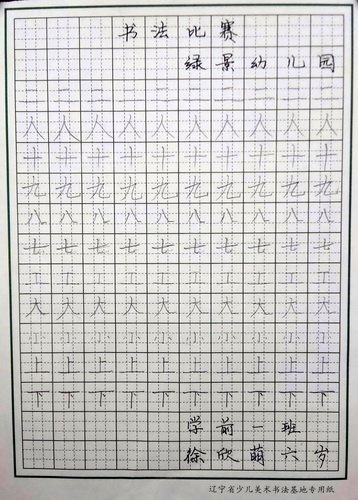 书法比赛
绿景幼儿园
二二二二二二二二二二
人人人人人人人人人人
十十十十十十十十十十
九九九九九九九九九九
八八八八八八八八八八
七七七七七七七七七七
工工工工工工工工工工
大大大大大大大大大大
小小小小小小小小小小
上上上上上上上上上上
下下下下下下下下下下
学前一班
徐欣萌六岁
辽宁省少儿美术书法基地专用纸